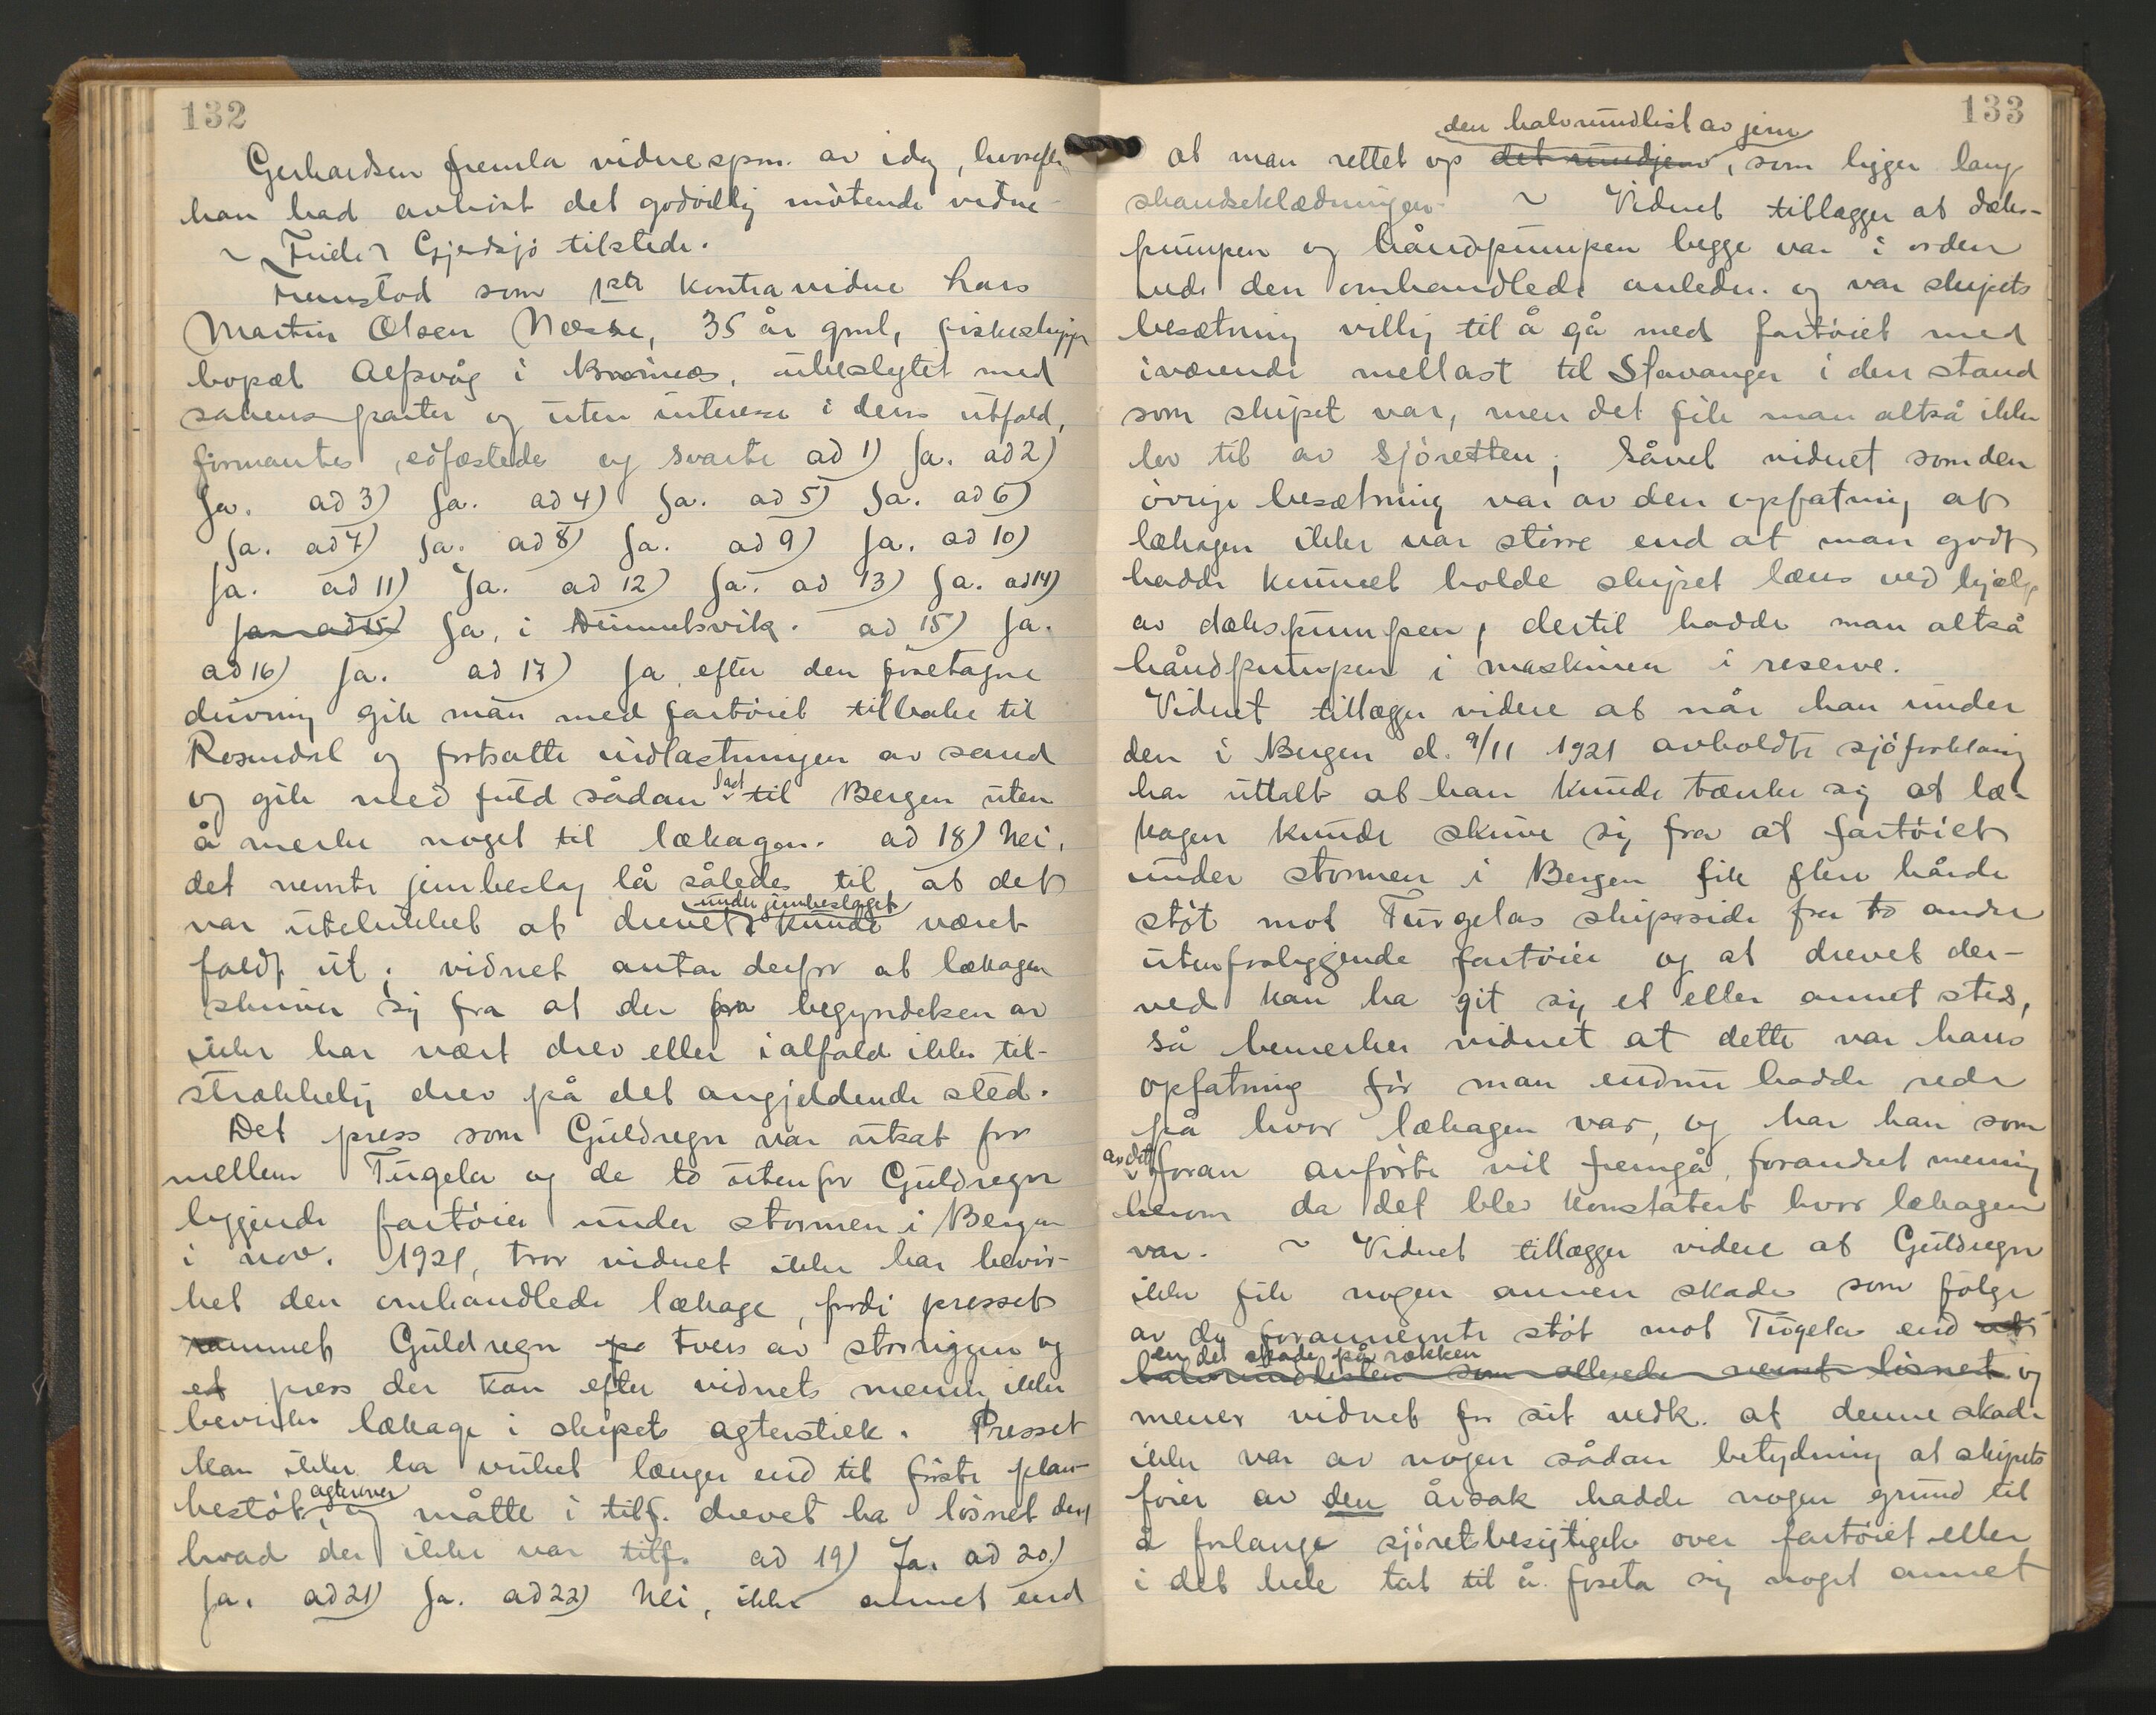 132
Gerhardsen fremla vidnespm. av idag, hvorefter
han bad avhørt det godvillig møtende vidne
~ Gjerdsjø tilstede.
Fremstod som 1ste kontravidne Lars
Martin Olsen Næsse, 35 år gml, fiskeskipper
bopæl Alfsvåg i Bremnes, ubeslegtet med
sakens parter og uten interesse i dens utfald,
formantes, edfæstedes og svarte ad 1) Ja. ad 2)
Ja. ad 3) Ja. ad 4) Ja. ad 5) Ja. ad 6)
Ja. ad 7) Ja. ad 8) Ja. ad 9) Ja. ad 10)
Ja. ad 11) Ja. ad 12) Ja. ad 13) Ja. ad 14)
Ja. ad 15) Ja, i Dimmelsvik. ad 15) Ja.
ad 16) Ja. ad 17) Ja, efter den foretagne
drivning gik man med fartøiet tilbake til
Rosendal og fortsatte indlastningen av sand
og gik med fuld sådan last til Bergen uten
å merke noget til lækagen. ad 18) Nei,
det nevnte jernbeslag lå således til, at det
under jernbeslaget
var utelukket at drevet kunde været
faldt ut; vidnet antar derfor at lækagen
skriver sig fra at der fra begyndelsen av
ikke har vært drev eller ialfald ikke til-
strækkelig drev på det angjeldende sted.
Det press som Guldregn var utsat for
mellem Tugela og de to utenfor Guldregn
liggende fartøier under stormen i Bergen
i nov. 1921, tror vidnet ikke har bevir-
ket den omhandlede lækage, fordi presset
rammet Guldregn på tvers av storriggen og
et press der kan efter vidnets mening ikke
bevirke lækage i skipets agterstick. Presset
kan ikke ha virket længer end til første plan-
agterover
kestøt, og måtte i tilf. drevet ha løsnet der,
hvad der ikke var tilf. ad 19) Ja. ad 20.)
Ja. ad 21) Ja. ad 22) Nei, ikke annet end
133
den halvrundlist av jern
at man rettet op det rundjern, som ligger langs
skandseklædningen. ~ Vidnet tillægger at dæks-
pumpen og håndpumpen begge var i orden
ved den omhandlede anledn. og var skipets
besætning villig til å gå med fartøiet med
iværende mellast til Stavanger i den stand
som skipet var, men det fik man altså ikke
lov til av sjøretten; såvel vidnet som den
øvrige besætning var av den opfatning at
lækagen ikke var større end at man godt
hadde kunnet holde skipet læns ved hjælp
av dækspumpen, dertil hadde man altså
håndpumpen i maskinen i reserve.
Vidnet tillægger videre at når han under
den i Bergen d. 9/11 1921 avholdte sjøforklaring
har uttalt at han kunde tænke sig at læ-
kagen kunde skrive sig fra at fartøiet
under stormen i Bergen fik flere hårde
støt mot Turgelas skipsside fra to andre
utenforliggende fartøier og at drevet der-
ved kan ha git sig et eller annet sted,
så bemerker vidnet at dette var hans
opfatning før man endnu hadde rede
på hvor lækagen var, og har han som
av det foran anførte vil fremgå, forandret mening
herom da det blev konstatert hvor lækagen
var. ~ Vidnet tillægger videre at Guldregn
ikke fik nogen annen skade som følge
av de forannevnte støt mot Tugela end at
en del skade på rækken
halvrundlisten som allerede nevnt løsnet og
mener vidnet for sit vedk. at denne skade
ikke var av nogen sådan betydning at skipets
fører av den årsak hadde nogen grund til
å forlange sjøretsbesigtigelse over fartøiet eller
i det hele tat til å foreta sig noget annet